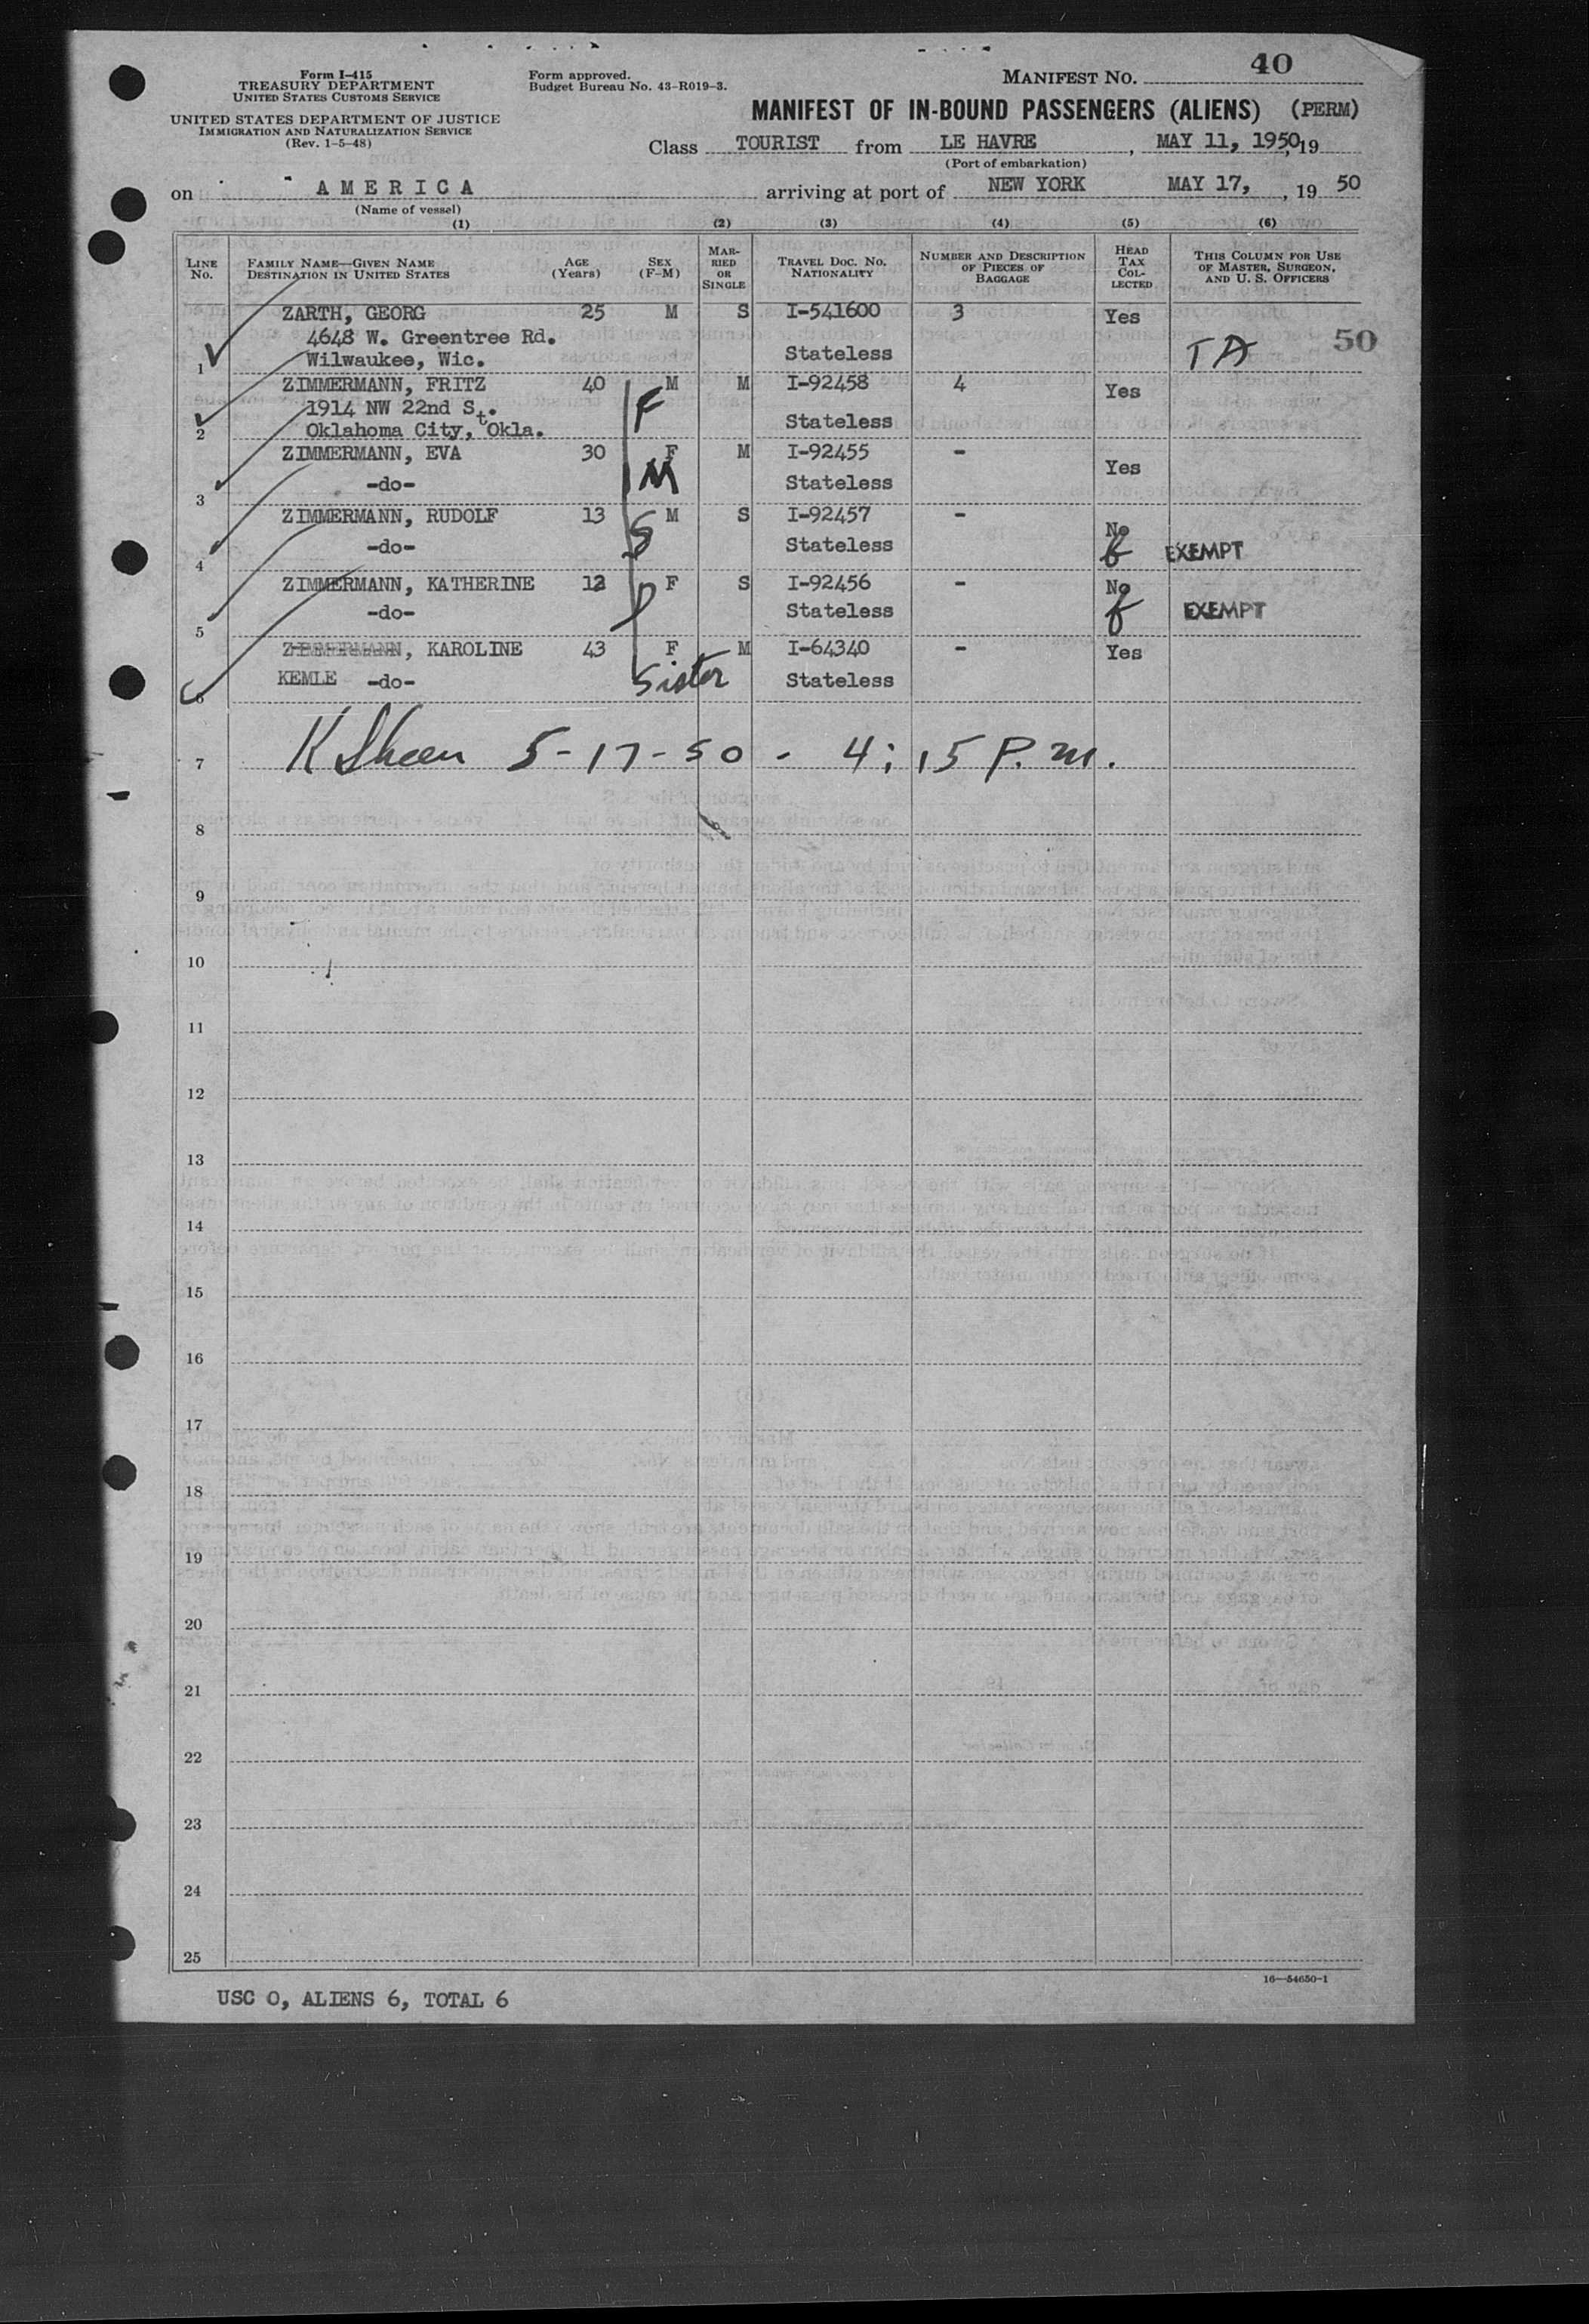 Form I-415
TREASURY DEPARTMENT
UNITED STATES CUSTOMS SERVICE
UNITED STATES DEPARTMENT OF JUSTICE
IMMIGRATION AND NATURALIZATION SERVICE
(Rev. 1-5-48)
Form approved.
Budget Bureau No. 43-R019-3.
MANIFEST NO. 40
MANIFEST OF IN-BOUND PASSENGERS (ALIENS) (PERM)
Class TOURIST from LE HAVRE, MAY 11, 1950, 19
(Port of embarkation)
on AMERICA arriving at port of NEW YORK MAY 17, , 19 50
(Name of vessel)
(1) (2) (3) (4) (5) (6)
LINE No. FAMILY NAME—GIVEN NAME DESTINATION IN UNITED STATES AGE (Years) SEX (F-M) MARRIED OR SINGLE TRAVEL DOC. NO. NATIONALITY NUMBER AND DESCRIPTION OF PIECES OF BAGGAGE HEAD TAX COLLECTED THIS COLUMN FOR USE OF MASTER, SURGEON, AND U. S. OFFICERS
ZARTH, GEORG 25 M S I-541600 3 Yes
4648 W. Greentree Rd. 50
1 Wilwaukee, Wic. Stateless TA
ZIMMERMANN, FRITZ 40 M M I-92458 4 Yes
1914 NW 22nd St. F
2 Oklahoma City, Okla. Stateless
ZIMMERMANN, EVA 30 F M I-92455 - Yes
3 -do- M Stateless
ZIMMERMANN, RUDOLF 13 M S I-92457 - No
4 -do- S Stateless EXEMPT
ZIMMERMANN, KATHERINE 12 F S I-92456 - No
5 -do- D Stateless EXEMPT
ZIMMERMANN, KAROLINE 43 F M I-64340 - Yes
6 KEMLE -do- Sister Stateless
7 K Skeen 5-17-50 - 4:15 P.M.
8
9
10
11
12
13
14
15
16
17
18
19
20
21
22
23
24
25
16—54650-1
USC 0, ALIENS 6, TOTAL 6